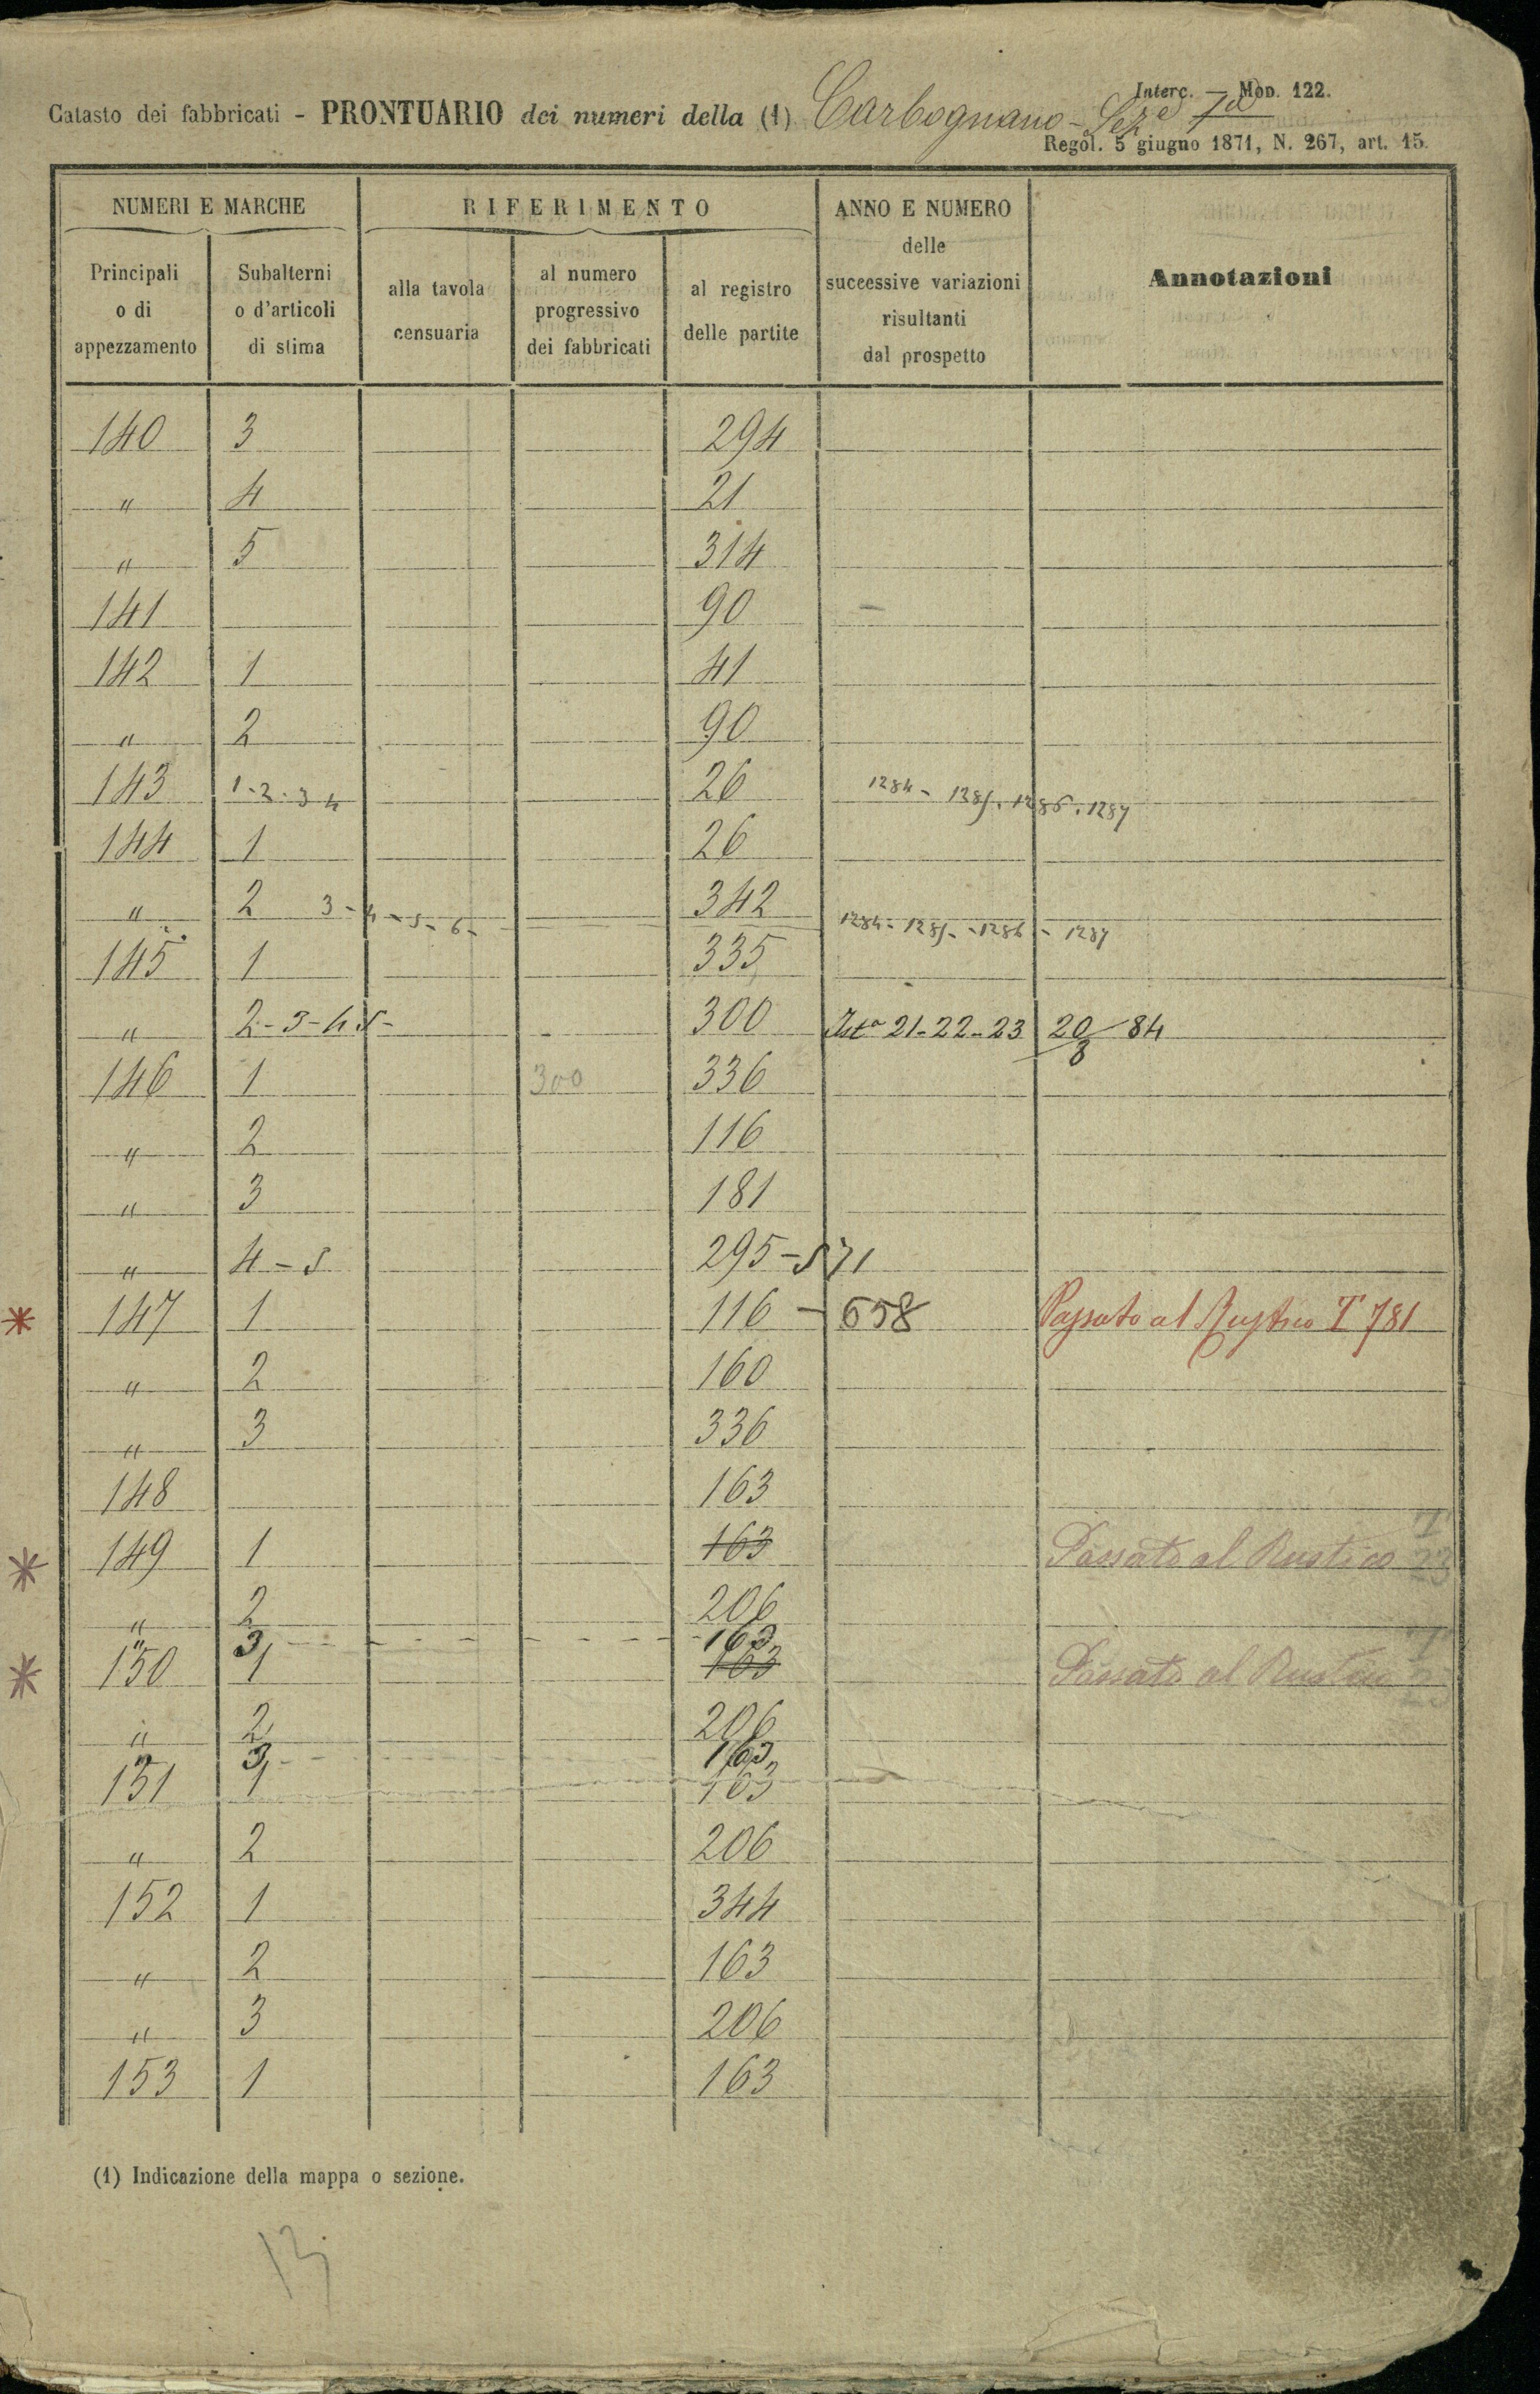 Interc. — Mod. 122.
Catasto dei fabbricati - PRONTUARIO dei numeri della (1) Carbognano - Sez.e 1a
Regol. 5 giugno 1871, N. 267, art. 15.
NUMERI E MARCHE
RIFERIMENTO
ANNO E NUMERO
delle
successive variazioni
risultanti
dal prospetto
Annotazioni
Principali
o di
appezzamento
Subalterni
o d'articoli
di stima
alla tavola
censuaria
al numero
progressivo
dei fabbricati
al registro
delle partite
140 3 294
" 4 21
" 5 314
141 90
142 1 41
" 2 90
143 1-2-3 4 26 1284 - 1285. 1286. 1287
144 1 26
" 2 3-4-5-6- 342 1284-1285--1286-1287
145 1 335
" 2-3-4 5- 300 21-22-23 20/8 84
146 1 300 336
" 2 116
" 3 181
" 4-5 295-571
* 147 1 116 - 658 Passato al Rustico T 781
" 2 160
" 3 336
148 163
* 149 1 163 Passato al Rustico T
" 2 206
" 3 163
* 150 1 163 Passato al Rustico T
" 2 206
" 3 163
151 1 163
" 2 206
152 1 344
" 2 163
" 3 206
153 1 163
(1) Indicazione della mappa o sezione.
13